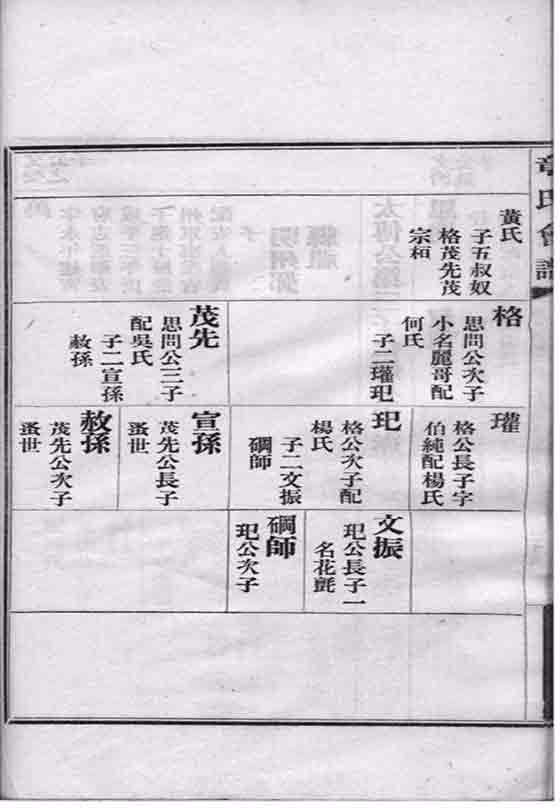 章氏會譜
黃氏
子五叔奴
格茂先茂
宗桓
格
思問公次子
小名麗哥配
何氏
子二瓘玘
茂先
思問公三子
配吳氏
子二宣孫
赦孫
瓘
格公長子字
伯純配楊氏
玘
格公次子配
楊氏
子二文振
碙師
宣孫
茂先公長子
蚤世
赦孫
茂先公次子
蚤世
文振
玘公長子一
名花氈
碙師
玘公次子